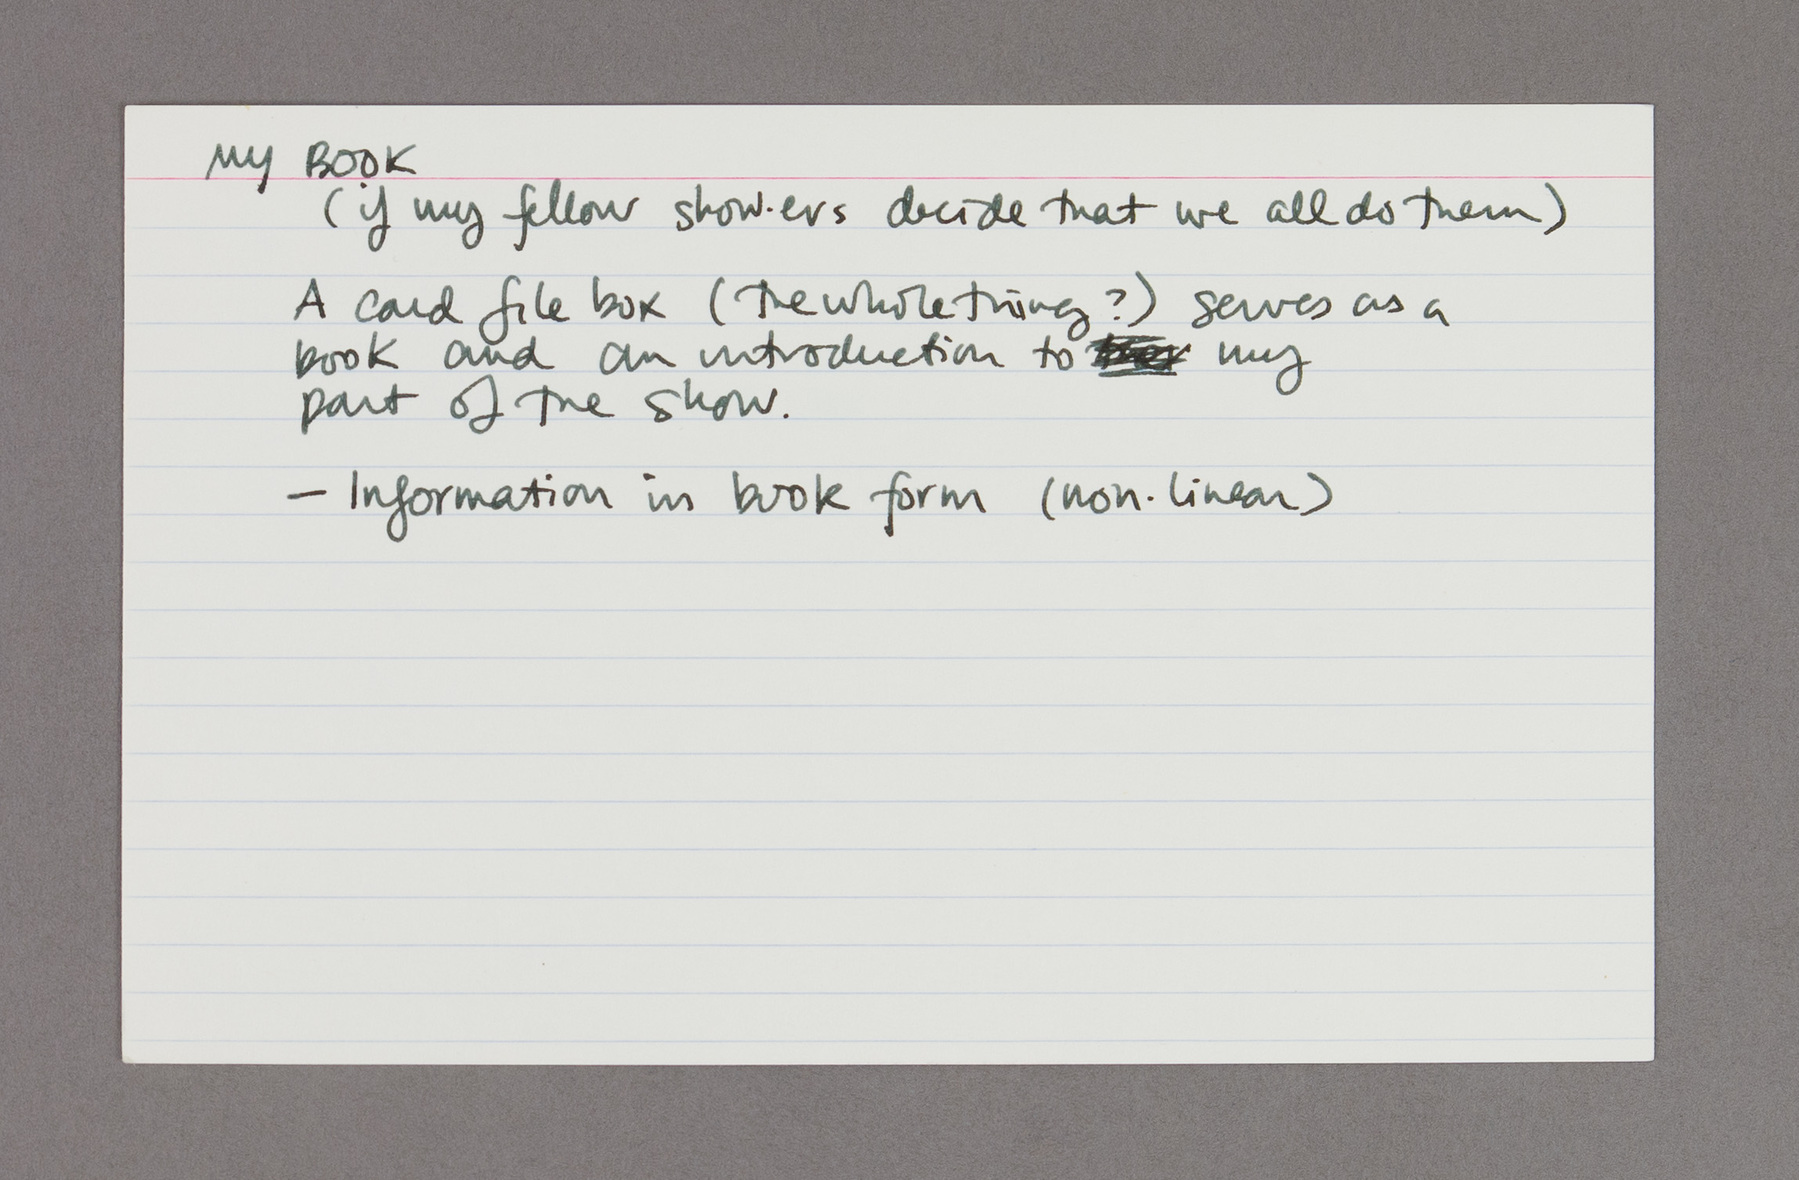 MY BOOK
(if my fellow show-ers decide that we all do them)
A card file box (the whole thing?) serves as a
book and an introduction to my
part of the show.
— Information in book form (non-linear)